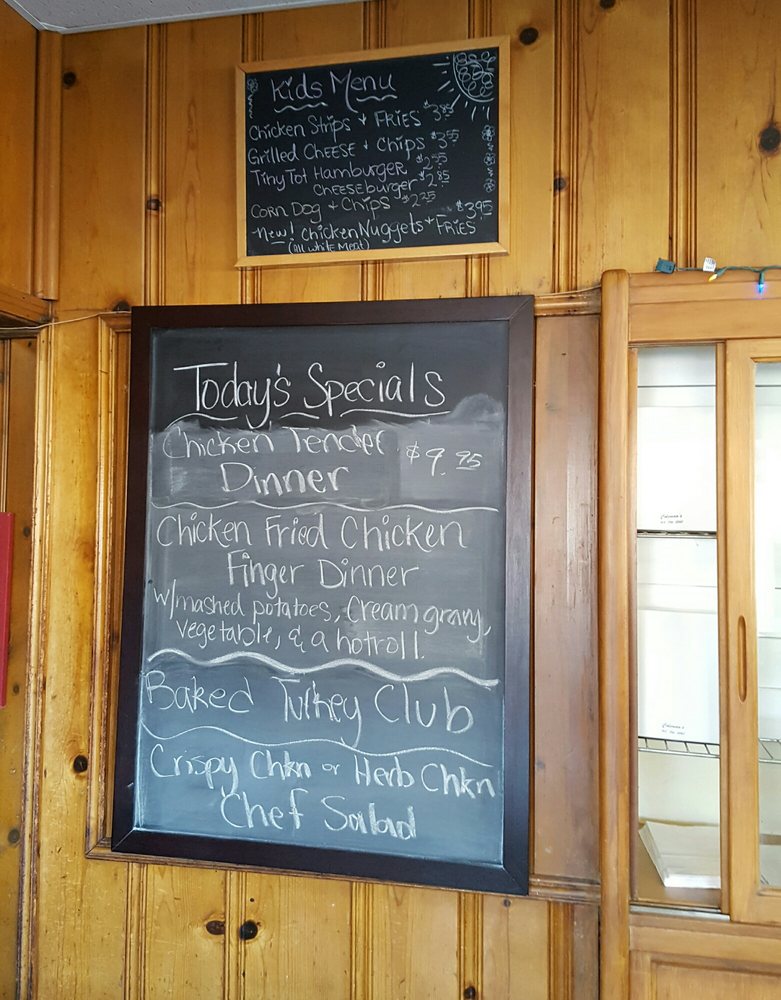 Kids Menu
Chicken Strips & FRIES $3.85
Grilled CHEESE & Chips $3.55
Tiny Tot Hamburger $2.55
CHEESEburger $2.85
CORN Dog & Chips $2.25
New! Chicken Nuggets & FRIES $3.95
(all white Meat)
Today's Specials
Chicken Tender $9.95
Dinner
Chicken Fried Chicken
Finger Dinner
w/mashed potatoes, Cream gravy,
vegetable, & a hot roll.
Baked Turkey Club
Crispy Chkn or Herb Chkn
Chef Salad